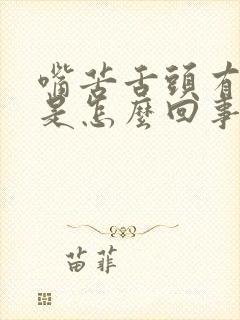 嘴苦舌頭有
是怎麼回事
苗菲